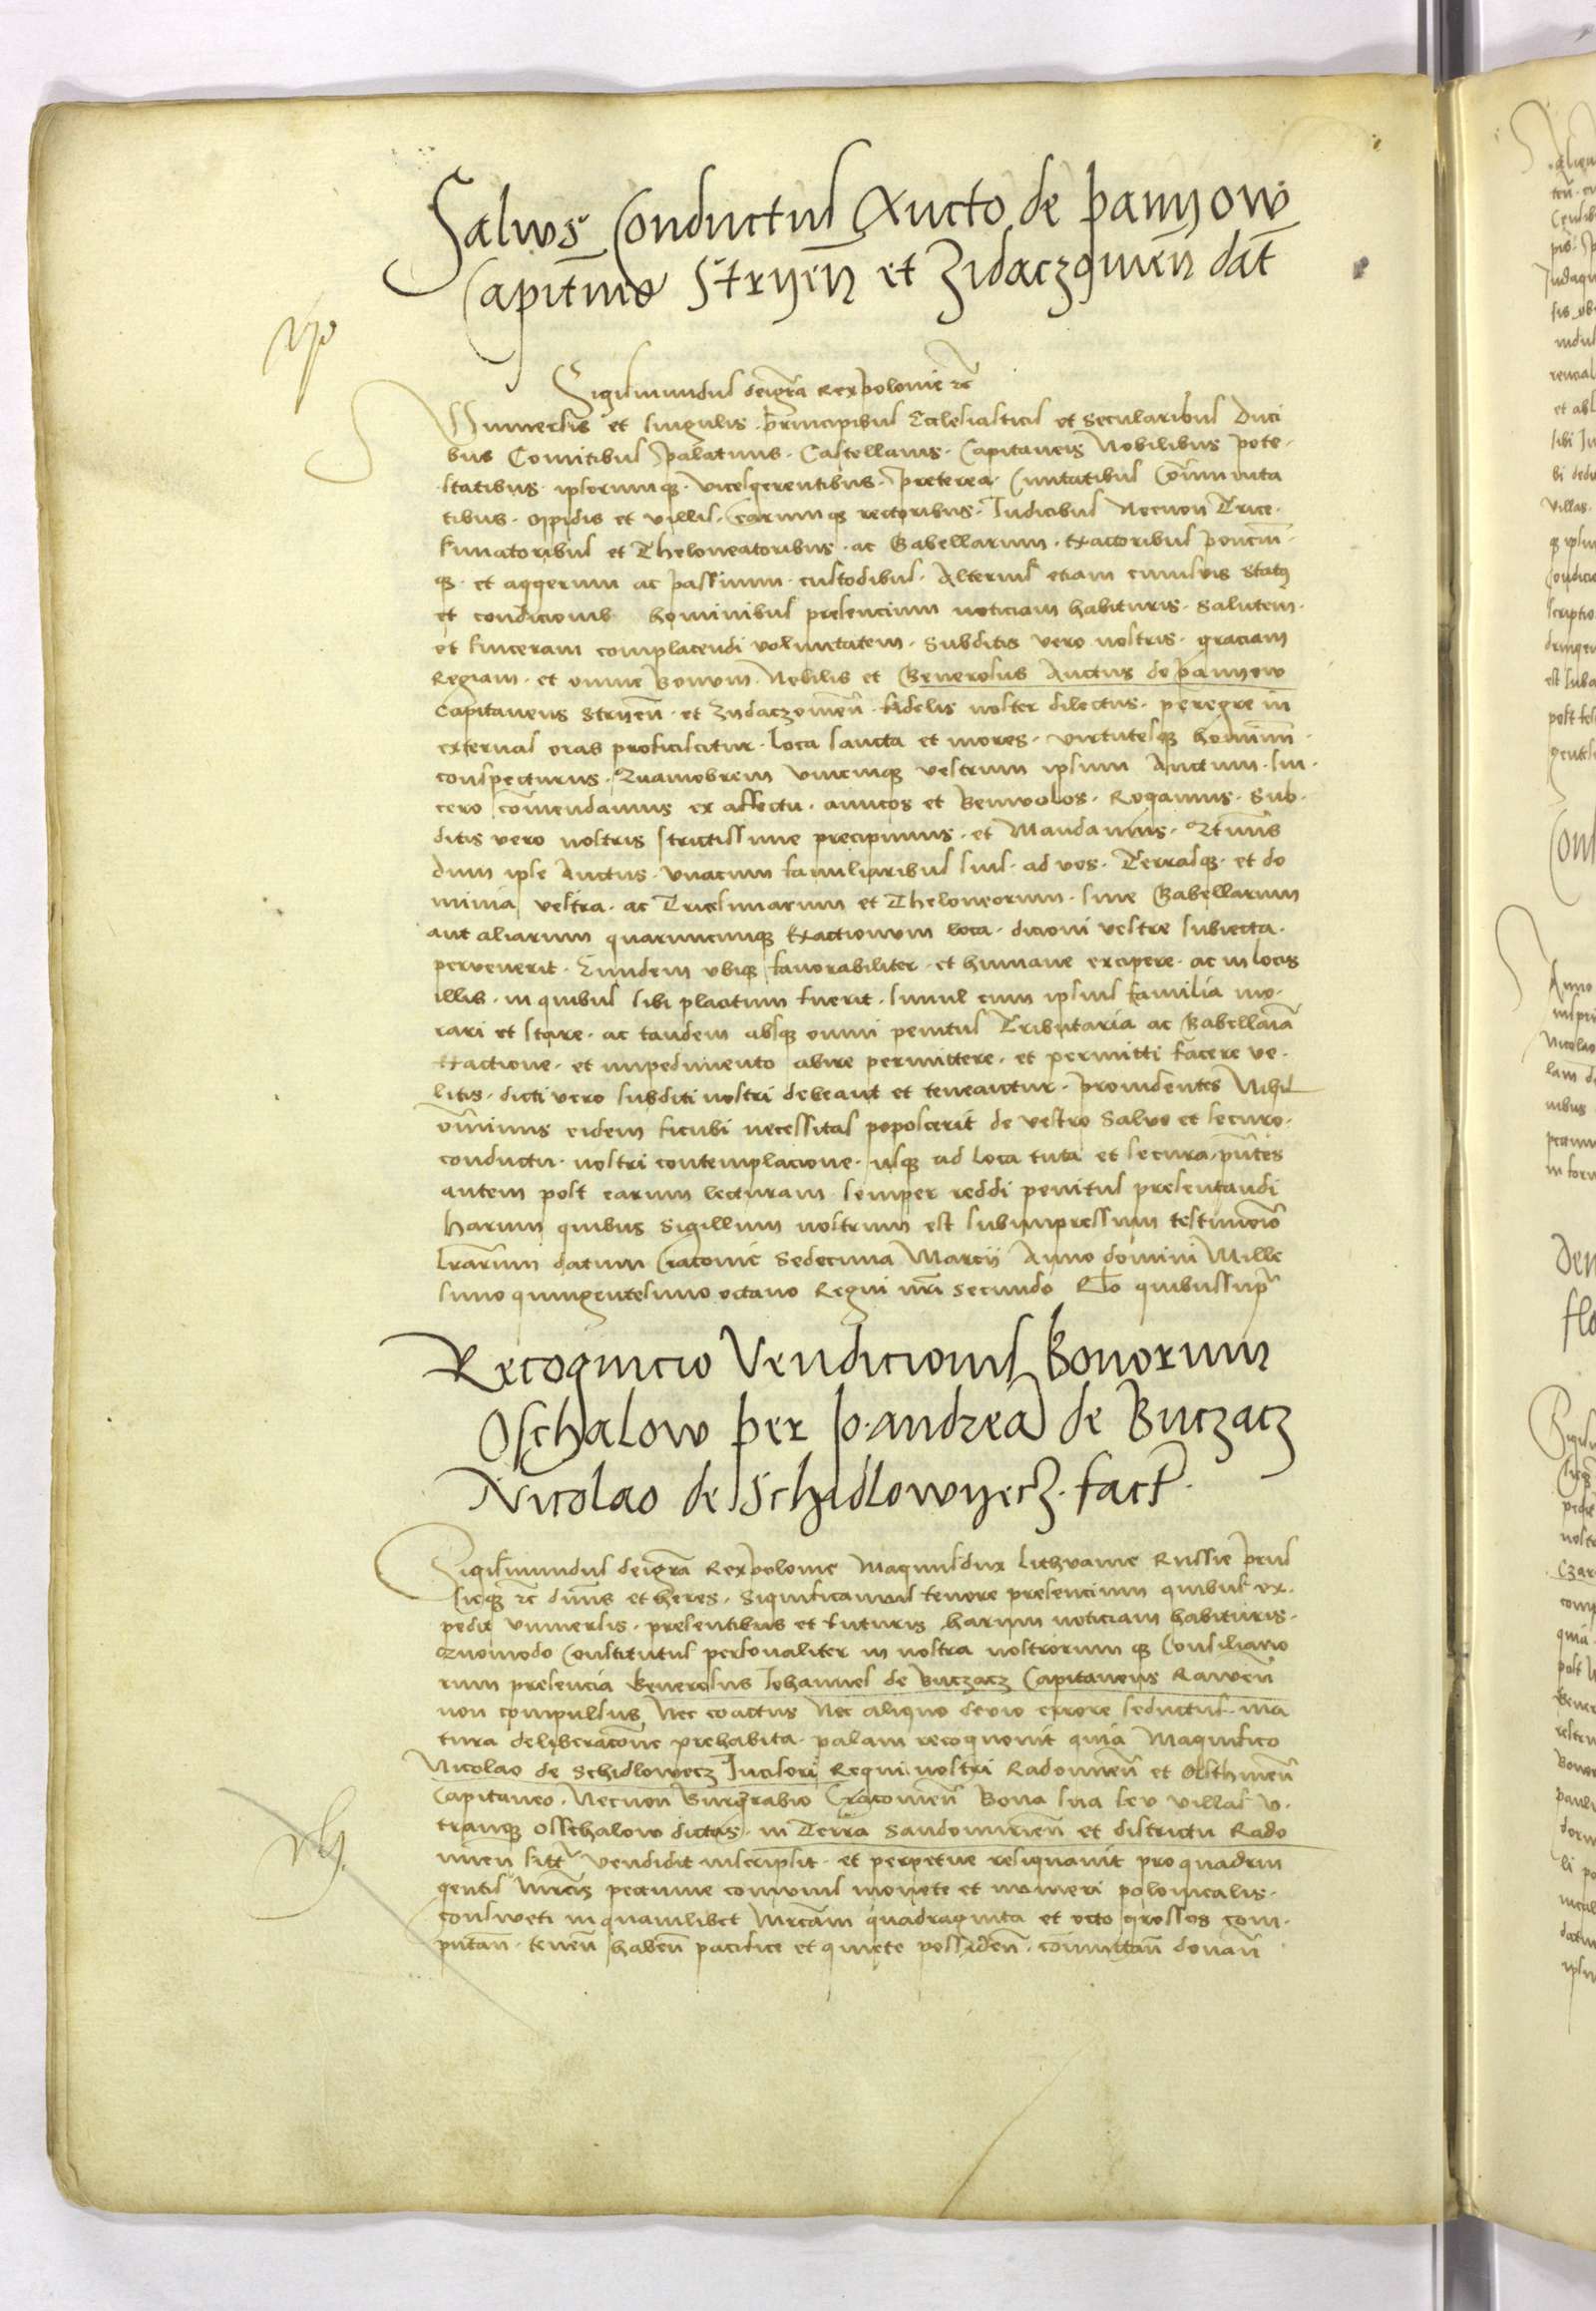 Salwos Conductus Aucto de pannyow
Capitneo Stryen et Zidaczowien dat
Sigismundus dei gra Rex polonie rc
Universis et singulis principibus Ecclesiasticis et Secularibus Duci
bus Comitibus palatinis Castellanis Capitaneis Nobilibus pote
statibus ipsorumq vicesgerentibus preterea Civitatibus Comunita
tibus oppidis et villis Earumq rectoribus Judicibus Necnon Trice
simatoribus et Theloneatoribus ac Gabellarum Exactoribus
q et aggerum ac passuum custodibus Alterius etiam cuiusvis Status
et condicionis hominibus presencium noticiam habituris Salutem
et sinceram complacendi voluntatem Subditis vero nostris graciam
Regiam et omne bonum Nobilis et Generosus Auctus de pannyow
Capitaneus Stryen et Zydaczowien fidelis noster dilectus peregre in
externas oras proficiscitur loca sancta et mores virtutesq hominum
conspecturus Quamobrem unicuiq vestrum ipsum Auctum sin
cero comendamus ex affectu amicos et Benivolos Rogamus Sub
ditis vero nostris strictissime precipimus et Mandamus
dum ipse Auctus unacum familiaribus suis ad vos Terrasq et do
minia vestra ac Tricesimarum et Theloneorum sive Gabellarum
aut aliarum quarumcunq Exactionum loca dicioni vestre subiecta
pervenerit Eundem ubiq favorabiliter et humane excipere ac in locis
illis in quibus sibi placitum fuerit simul cum ipsius familia mo
rari et stare ac tandem absq omni penitus Tributaria ac Gabellaria
Exactione et impedimento abire permittere et permitti facere ve
litis dicti vero subditi nostri debeant et teneantur providentes Nihil
ominus eidem sicubi necessitas poposcerit de vestro Salvo et securo
conductu nostri contemplacione usq ad loca tuta et secura pntes
autem post earum lecturam semper reddi penitus presentandi
harum quibus Sigillum nostrum est subimpressum testimonio
lrarum datum Cracovie Sedecima Marcii Anno domini Mille
simo quingentesimo octavo Regni nri Secundo Rlo quibussup
Recognicio Vendicionis Bonorum
Oschalow per Jo. andrea de Buczacz
Nicolao de Schidlowyecz fact
Sigismundus dei gra Rex polonie Magnus dux Lithvanie Russie prus
sieq rc dnus et heres Significamus tenore presencium quibus ex
pedit Universis presentibus et futuris harum noticiam habituris
Quomodo Constitutus personaliter in nostra nostrorumq Consiliario
rum presencia Generosus Johannes de Buczacz Capitaneus Rawen
non compulsus Nec coactus Nec aliquo devio errore seductus ma
tura deliberacone prehabita palam recognovit quia Magnifico
Nicolao de Schidlowecz Incisori Regni nostri Radomien et
Capitaneo Necnon Burgrabio Cracovien Bona sua seu villas u
tranq Osschalow dictas in Terra Sandomirien et districtu Rado
mien sitt vendidit inscripsit et perpetue resignavit pro quadrin
gentis mrcis pecunie comunis monete et numeri polonicalis
consweti in quamlibet mrcam quadraginta et octo grossos com
putan tenen haben pacifice et quiete possiden comutan donan